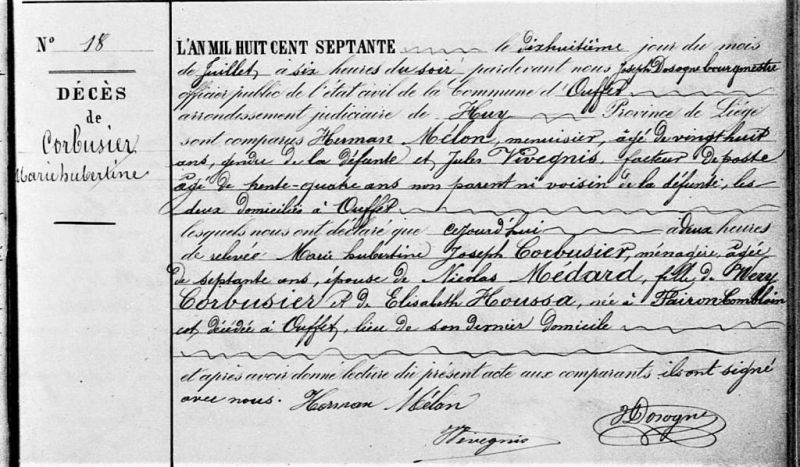 N° 18
DÉCÈS
de
Corbusier
Marie hubertine
L'AN MIL HUIT CENT SEPTANTE le dixhuitième jour du mois
de Juillet, à six heures du soir pardevant nous Joseph Dosogne bourgmestre
officier public de l'état civil de la Commune d'Ouffet
arrondissement judiciaire de Huy Province de Liége
sont comparus Herman Mélon, menuisier, âgé de vingt huit
ans, gendre de la défunte et Jules Vivegnis, facteur de poste
âgé de trente-quatre ans non parent ni voisin de la défunte, les
deux domiciliés à Ouffet
lesquels nous ont déclaré que cejourd'hui à deux heures
de relevée Marie hubertine Joseph Corbusier, ménagère, âgée
de septante ans, épouse de Nicolas Médard, fille de Wery
Corbusier et de Elisabeth Houssa, née à Fairon Comblain
est décédée à Ouffet, lieu de son dernier domicile
et après avoir donné lecture du présent acte aux comparants ils ont signé
avec nous. Herman Mélon
JVivegnis
JDosogne